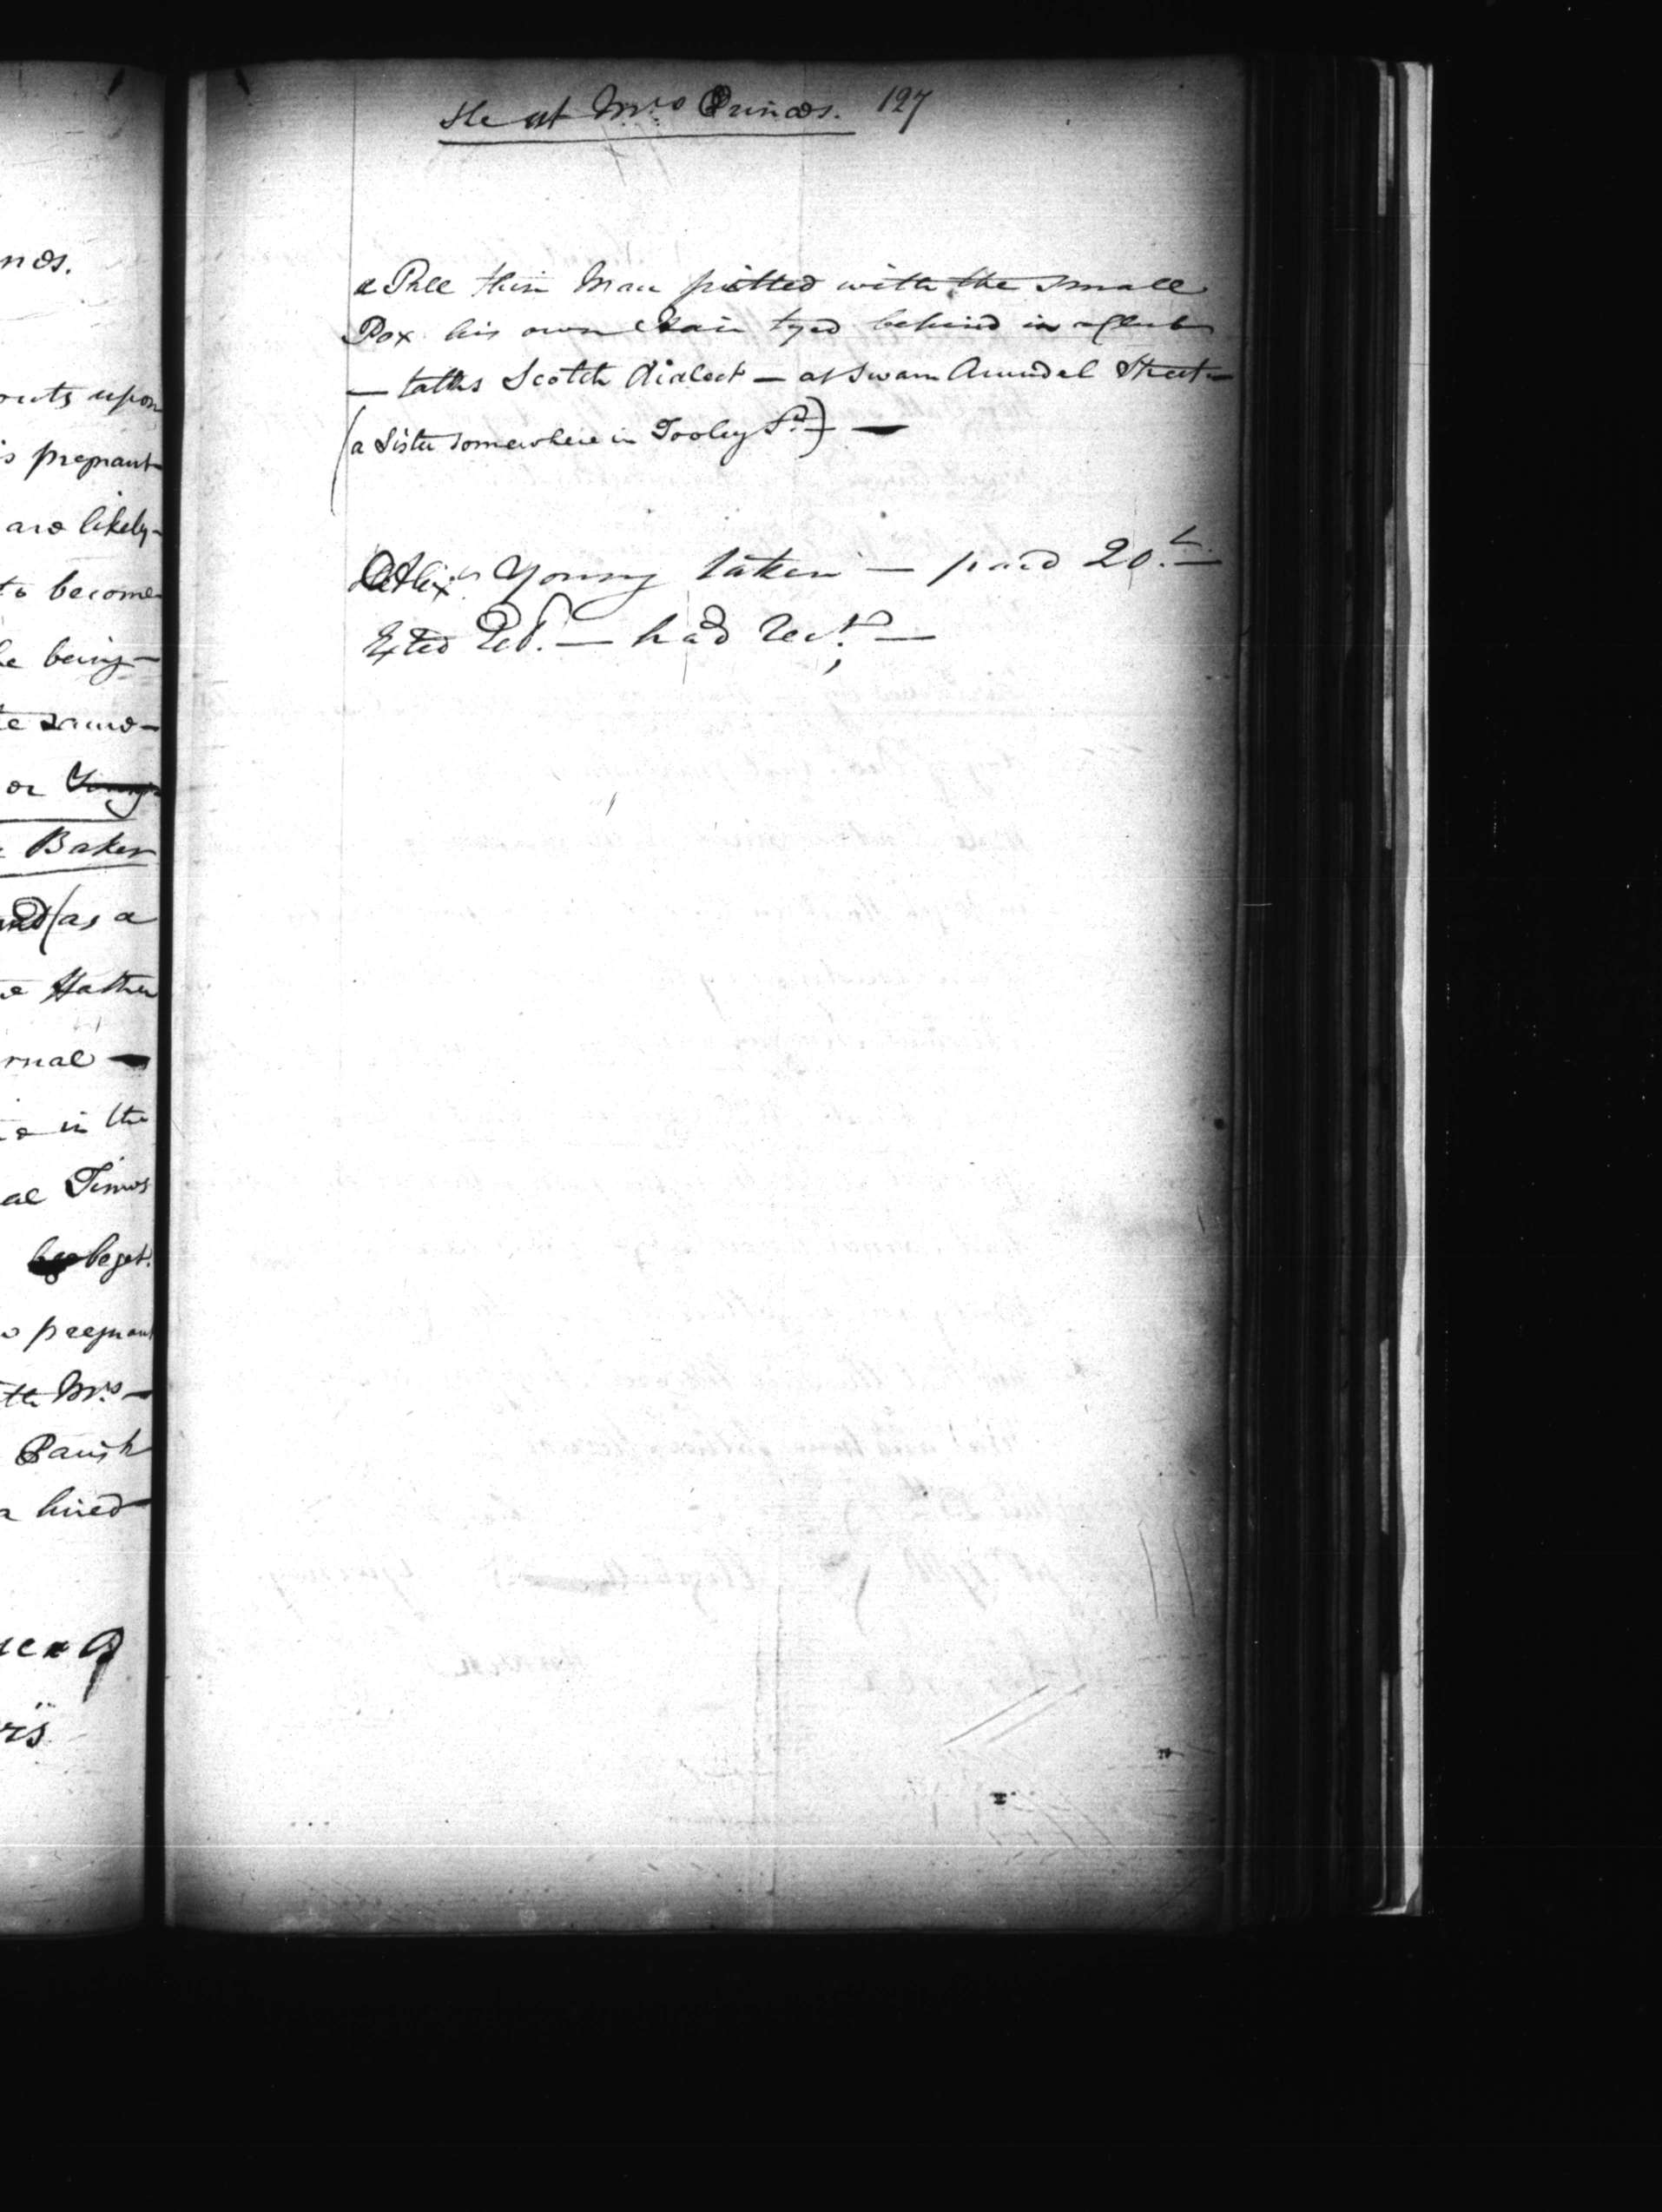 nds.
ruts upon
s pregnant
are likely
to become
he being
te same
or Young
Baker
and (as a
Father
rnal
in the
al Times
beget.
pregnant
th Mrs
Parish
a hired
She at Mrs Prinds. 127
a Pale thin Man pitted with the Small
Pox his own Hair tyed behind in a Club
— talks Scotch dialect — at Swan Arundel Street —
(a Sister somewhere in Tooley St.) —
Alexr. Young taken — paid 20.L. —
had Rect. —